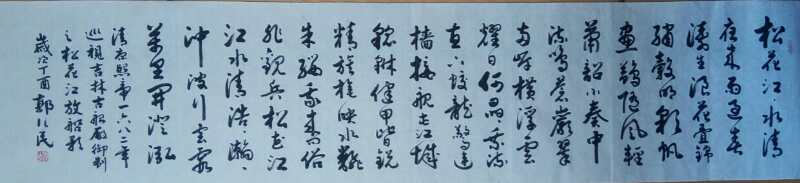 松花江水清
夜来雨过春
濤生浪花疊錦
繡縠明彩帆
畫鷁随风輕
簫韶小奏中
流鳴蒼巖翠
兩岸横浮雲
耀日何晶乘流
直下蛟龍驚連
檣接舰屯江城
貔貅健甲皆鋭
精旌旄映水翻
朱纓我来問俗
非觀兵松花江
江水清浩浩瀚瀚
冲波行雲霞
萬里開澄泓
清康熙帝一六八二年
巡視吉林吉船廠御制
之松花江放船歌
歲次丁酉 郭民